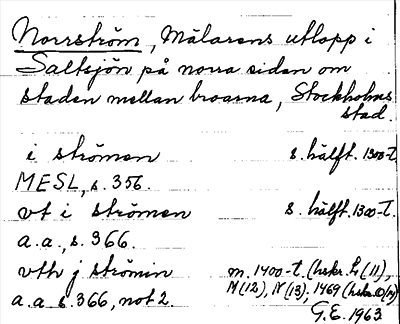 Norrström, Mälarens utlopp i
Saltsjön på norra sidan om
staden mellan broarna, Stockholms
stad.
i strömen s. hälft. 1300-t.
MESL, s. 356.
vt i strömen s. hälft. 1300-t.
a.a., s. 366.
vth j strömin m. 1400-t. (hskr. L (11),
a.a. s. 366, not 2. M (12), N (13), 1469 (hskr. O (14)
G.E. 1963